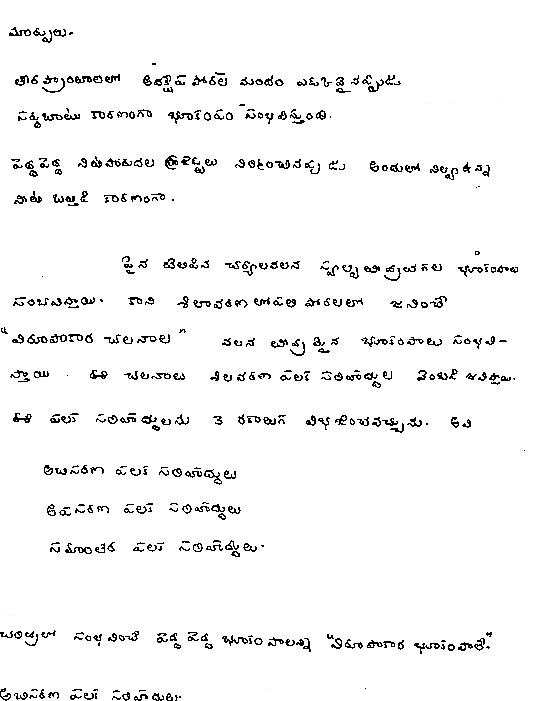 మార్పులు.
అవక్షేప పొరల మందం ఎక్కువైనప్పుడు
సర్దుబాటు కారణంగా భూకంపం సంభవిస్తుంది.
పెద్దపెద్ద నీటిపారుదల ప్రాజెక్టులు నిర్మించినప్పుడు అందులో నిల్వఉన్న
నీటి ఒత్తిడి కారణంగా.
పైన తెలిపిన చర్యలవలన స్వల్ప తీవ్రతగల భూకంపాలు
సంభవిస్తాయి. కాని శిలావరణ లోపలి పొరలలో జనించే
"విరూపకార చలనాల" వలన తీవ్రమైన భూకంపాలు సంభవి-
స్తాయి. ఈ చలనాలు శిలావరణ పలక సరిహద్దుల వెంబడి జనిస్తాయి.
ఈ పలక సరిహద్దులను 3 రకాలుగా విభజించవచ్చును. అవి
అభిసరణ పలక సరిహద్దులు
అపసరణ పలక సరిహద్దులు
సమాంతర పలక సరిహద్దులు.
చరిత్రలో సంభవించే పెద్ద పెద్ద భూకంపాలన్ని "విరూపకార భూకంపాలే".
అభిసరణ పలక సరిహద్దులు.